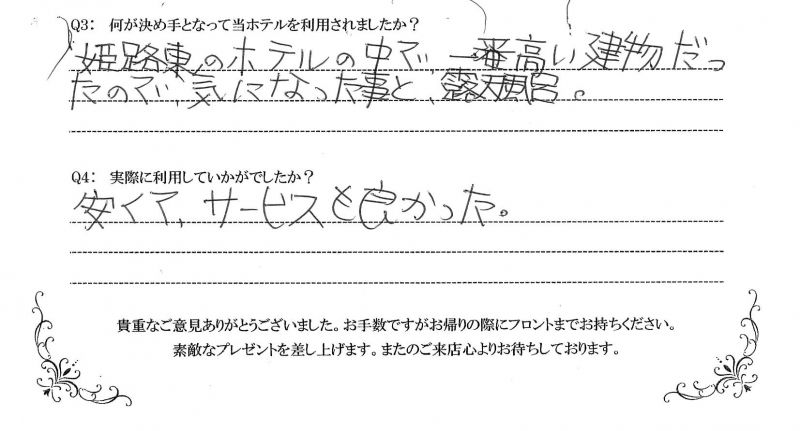 Q3： 何が決め手となって当ホテルを利用されましたか？
姫路東のホテルの中で、一番高い建物だっ
たので、気になった事と、露天風呂。
Q4： 実際に利用していかがでしたか？
安くて、サービスも良かった。
貴重なご意見ありがとうございました。お手数ですがお帰りの際にフロントまでお持ちください。
素敵なプレゼントを差し上げます。またのご来店心よりお待ちしております。